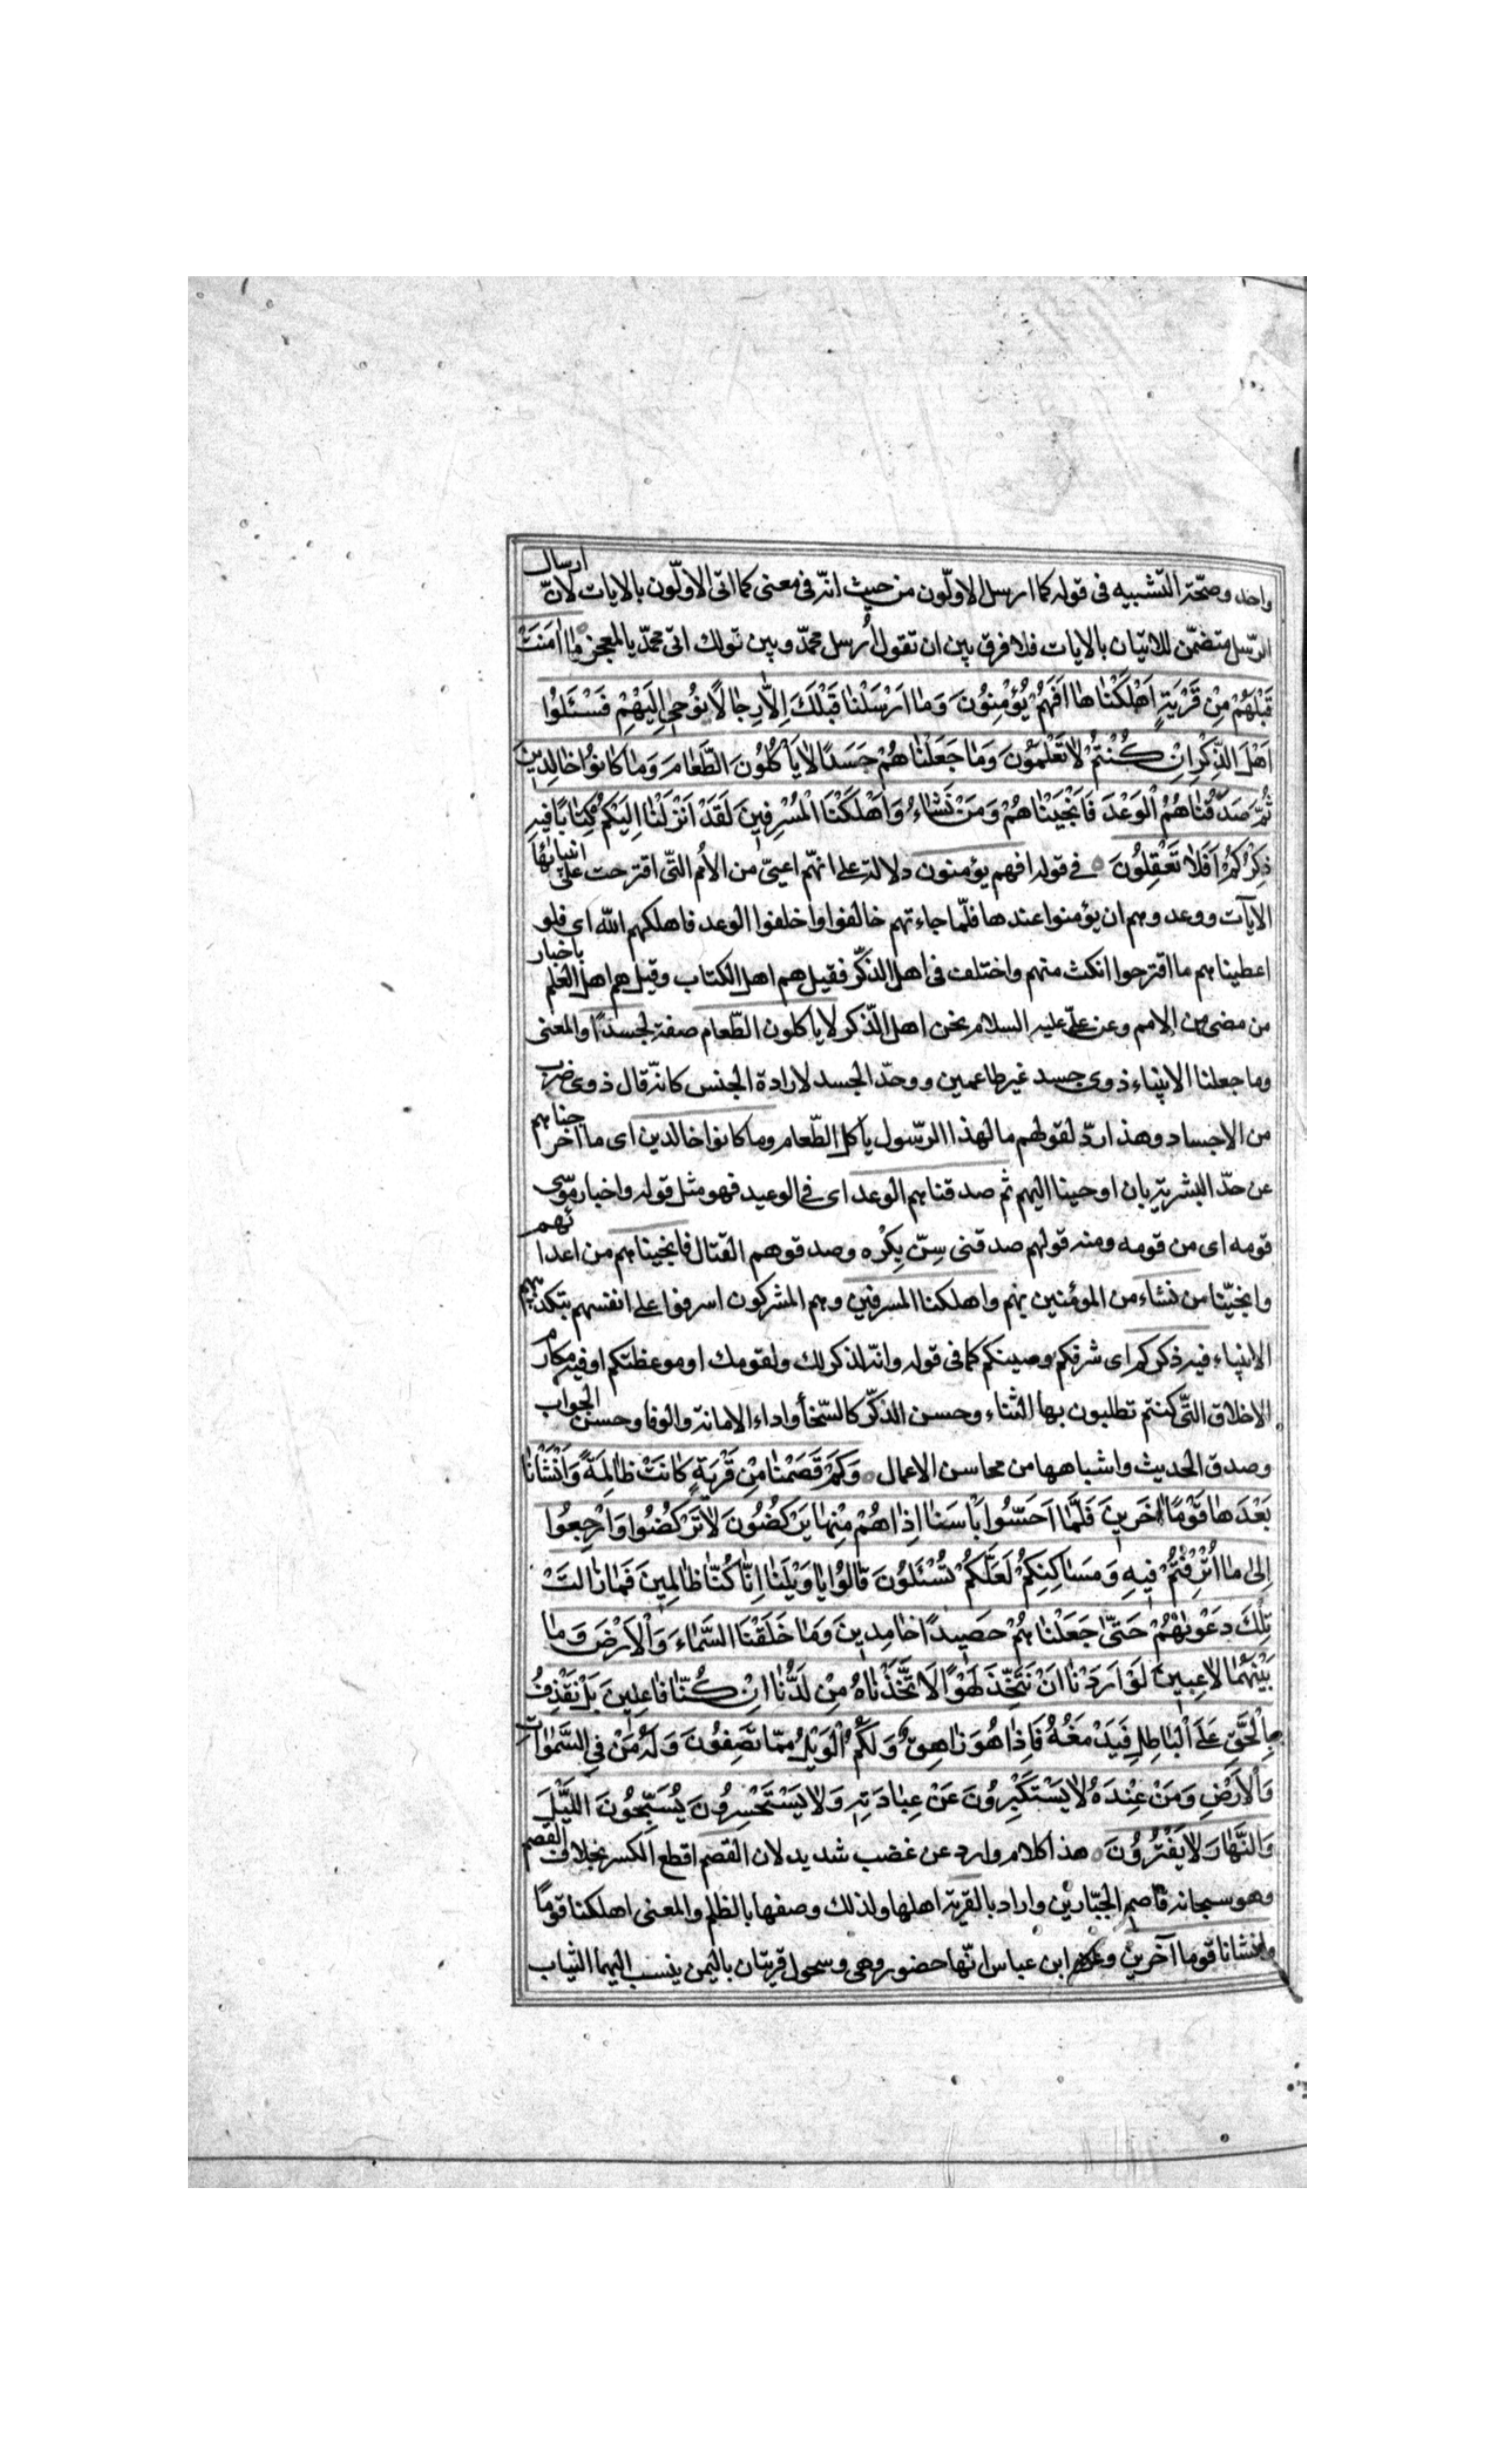 واحد وصحّة التّشبيه فى قوله كما ارسل الاولّون من حيث انّه فى معنى كما اتى الاولّون بالايات لانّ ارسال
الرّسل متضمّن للاتيان بالايات فلا فرق بين ان تقول اُرسل محمّد وبين قولك اتى محمّد بالمعجز مٰا اٰمَنَتْ
قَبْلَهُمْ مِنْ قَرْيَةٍ اَهْلَكْنٰاهٰا اَفَهُمْ يُؤْمِنُونَ وَمٰا اَرْسَلْنٰا قَبْلَكَ اِلاّٰ رِجٰالاً نوُحٖى اِلَيْهِمْ فَسْئَلوُا
اَهْلَ الذِّكْرِ اِنْ كُنْتُمْ لاٰ تَعْلَموُنَ وَمٰا جَعَلْنٰاهُمْ جَسَدًا لاٰ يَأْكُلوُنَ الطَّعٰامَ وَمٰا كٰانوُا خٰالِدٖينَ
ثُمَّ صَدَقْنٰاهُمُ الْوَعْدَ فَاَنْجَيْنٰاهُمْ وَمَنْ نَشٰاءُ وَاَهْلَكْنَا الْمُسْرِفٖينَ لَقَدْ اَنْزَلْنٰا اِلَيْكُمْ كِتٰابًا فيهِ
ذِكْرُكُمْ اَفَلاٰ تَعْقِلوُنَ فى قوله افهم يؤمنون دلالة على انهّم اعتىّ من الأمم التّى اقترحت على انبيائها
الايآت ووعدوهم ان يؤمنوا عندها فلّما جاءتهم خالفوا واخلفوا الوعد فاهلكهم الله اى فلو
اعطيناهم ما اقترحوا انكث منهم واختلف فى اهل الذكّر فقيل هم اهل الكتاب وقيل هم اهل العلم باخبار
من مضى من الامم وعن علىّ عليه السلام نحن اهل الذّكر لا ياكلون الطّعام صفة لجسدًا والمعنى
وما جعلنا الانبياء ذوى جسد غير طاعمين ووحدّ الجسد لارادة الجنس كانّه قال ذوى ضرب
من الاجساد وهذا ردّ لقولهم ما لهذا الرسّول يأكل الطّعام وما كانوا خالدين اى ما اخرجناهم
عن حدّ البشرية بان اوحينا اليهم ثم صدقناهم الوعد اى فى الوعيد فهو مثل قوله واختار موسى
قومه اى من قومه ومنه قولهم صدقنى سِنّ بِكْره وصدقوهم القتال فانجيناهم من اعدائهم
وانجيّنا من نشاء من المؤمنين بهم واهلكنا المسرفين وهم المشركون اسرفوا على انفسهم بتكذيبهم
الانبياء فيه ذكركم اى شرفكم وصيتكم كما فى قوله وانّه لذكر لك ولقومك او موعظتكم او فيه مكارم
الاخلاق التّى كنتم تطلبون بها الثناء وحسن الذكّر كالسّخاء واداء الامانة والوفا وحسن الجواب
وصدق الحديث واشباهها من محاسن الاعمال وَكَمْ قَصَمْنٰا مِنْ قَرْيَةٍ كٰانَتْ ظٰالِمَةً وَاَنْشَأْنٰا
بَعْدَهٰا قَوْمًا اٰخَرينَ فَلَمّٰا اَحَسّوُا بَأْسَنٰا اِذٰا هُمْ مِنْهٰا يَرْكُضُونَ لاٰ تَرْكُضُوا وَارْجِعوُا
اِلىٰ مٰا اُتْرِفْتُمْ فيهِ وَمَسٰاكِنِكُمْ لَعَلَّكُمْ تُسْئَلوُنَ قٰالوُا يٰا وَيْلَنٰا اِنّٰا كُنّٰا ظٰالِمينَ فَمٰا زٰالَتْ
تِلْكَ دَعْوٰيهُمْ حَتّىٰ جَعَلْنٰاهُمْ حَصيدًا خٰامِدٖينَ وَمٰا خَلَقْنَا السَّمٰاءَ وَالْاَرْضَ وَمٰا
بَيْنَهُمٰا لاٰعِبينَ لَوْ اَرَدْنٰا اَنْ نَتَّخِذَ لَهْوًا لَاتَّخَذْنٰاهُ مِنْ لَدُنّٰا اِنْ كُنّٰا فٰاعِلينَ بَلْ نَقْذِفُ
بِالْحَقِّ عَلَى الْبٰاطِلِ فَيَدْمَغُهُ فَاِذٰا هُوَ زٰاهِقٌ وَلَكُمُ الْوَيْلُ مِمّٰا تَصِفوُنَ وَلَهُ مَنْ فِى السَّمٰوٰاتِ
وَالْاَرْضِ وَمَنْ عِنْدَهُ لاٰ يَسْتَكْبِرُونَ عَنْ عِبٰادَتِهِ وَلاٰ يَسْتَحْسِرُونَ يُسَبِّحوُنَ اللَّيْلَ
وَالنَّهٰارَ لاٰ يَفْتُرُونَ هذا كلام وارد عن غضب شديد لان القصم اقطع الكسر بخلاف القصم
وهو سبحانه قاصم الجبّارين واراد بالقرية اهلها ولذلك وصفها بالظلم والمعنى اهلكنا قومًا
وانشانا قوما آخرين وعن ابن عباس انّها حضور وهى وسحول قريتان باليمن ينسب اليهما الثياب